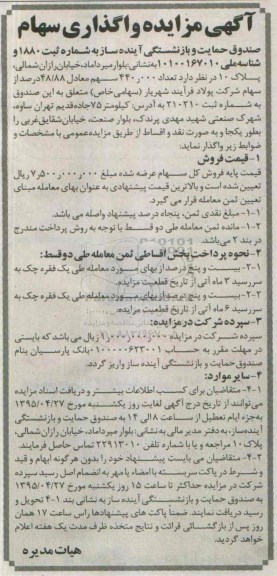 آگهی مزایده واگذاری سهام
صندوق حمایت و بازنشستگی آینده ساز به شماره ثبت ۱۸۸۰ و
شناسه ملی ۱۰۱۰۰۱۶۷۰۱۰ به نشانی: بلوار میرداماد، خیابان رازان شمالی،
پلاک ۱۰ در نظر دارد تعداد ۴۴۰٫۰۰۰ سهم معادل ۴۸/۸۸ درصد از
سهام شرکت پولاد فرآیند شهریار (سهامی خاص) متعلق به این صندوق
به شماره ثبت ۲۱۰۲۱۰ به آدرس: کیلومتر ۷۵ جاده قدیم تهران ساوه،
شهرک صنعتی شهید مهدی پرندک، بلوار صنعت، خیابان شقایق غربی را
بطور یکجا و به صورت نقد و اقساط از طریق مزایده عمومی با مشخصات و
ضوابط زیر واگذار نماید:
۱- قیمت فروش
قیمت پایه فروش کل سهام عرضه شده مبلغ ۷٫۵۰۰٫۰۰۰٫۰۰۰ ریال
تعیین شده است و بالاترین قیمت پیشنهادی به عنوان بهای معامله مبنای
تعیین ثمن معامله قرار می گیرد.
۱-۱- مبلغ نقدی ثمن، پنجاه درصد پیشنهاد واصله می باشد.
۱-۲- مانده ثمن معامله طی دو قسط با توجه به روش پرداخت مندرج
در بند ۲ می باشد.
۲- نحوه پرداخت بخش اقساطی ثمن معامله طی دو قسط:
۲-۱- بیست و پنج درصد از بهای مورد معامله طی یک فقره چک به
سررسید ۳ ماه آتی از تاریخ قطعیت مزایده.
۲-۲- بیست و پنج درصد از بهای مورد معامله طی یک فقره چک به
سررسید ۶ ماه آتی از تاریخ قطعیت مزایده.
۳- سپرده شرکت در مزایده:
سپرده شرکت در مزایده ریال می باشد که بایستی
در مهلت مقرر به حساب بانک پارسیان بنام
صندوق حمایت و بازنشستگی آینده ساز واریز گردد.
۴- سایر موارد:
۴-۱- متقاضیان برای کسب اطلاعات بیشتر و دریافت اسناد مزایده
می توانند از تاریخ درج آگهی لغایت روز یکشنبه مورخ ۱۳۹۵/۰۴/۲۷
به جزء ایام تعطیل از ساعت ۸ الی ۱۲ به صندوق حمایت و بازنشستگی
آینده ساز، به دفتر مدیر مالی به نشانی: بلوار میرداماد، خیابان رازان شمالی،
پلاک ۱۰ مراجعه و یا با شماره تلفن ۲۲۹۱۳۰۱۰ تماس حاصل فرمایند.
۴-۲- متقاضیان می بایست پیشنهاد خود را بدون هرگونه ابهام و قید
و شرط در پاکت سربسته با امضاء یا مهر به انضمام اصل رسید سپرده
شرکت در مزایده حداکثر تا ساعت ۱۵ روز یکشنبه مورخ ۱۳۹۵/۰۴/۲۷
به صندوق حمایت و بازنشستگی آینده ساز به نشانی بند ۴-۱ تحویل و
رسید دریافت نمایند. ضمناً پاکت های پیشنهادها راس ساعت ۱۷ همان
روز پس از بازگشائی قرائت و نتایج متخذه ظرف مدت یک هفته اعلام
خواهد گردید.
هیات مدیره